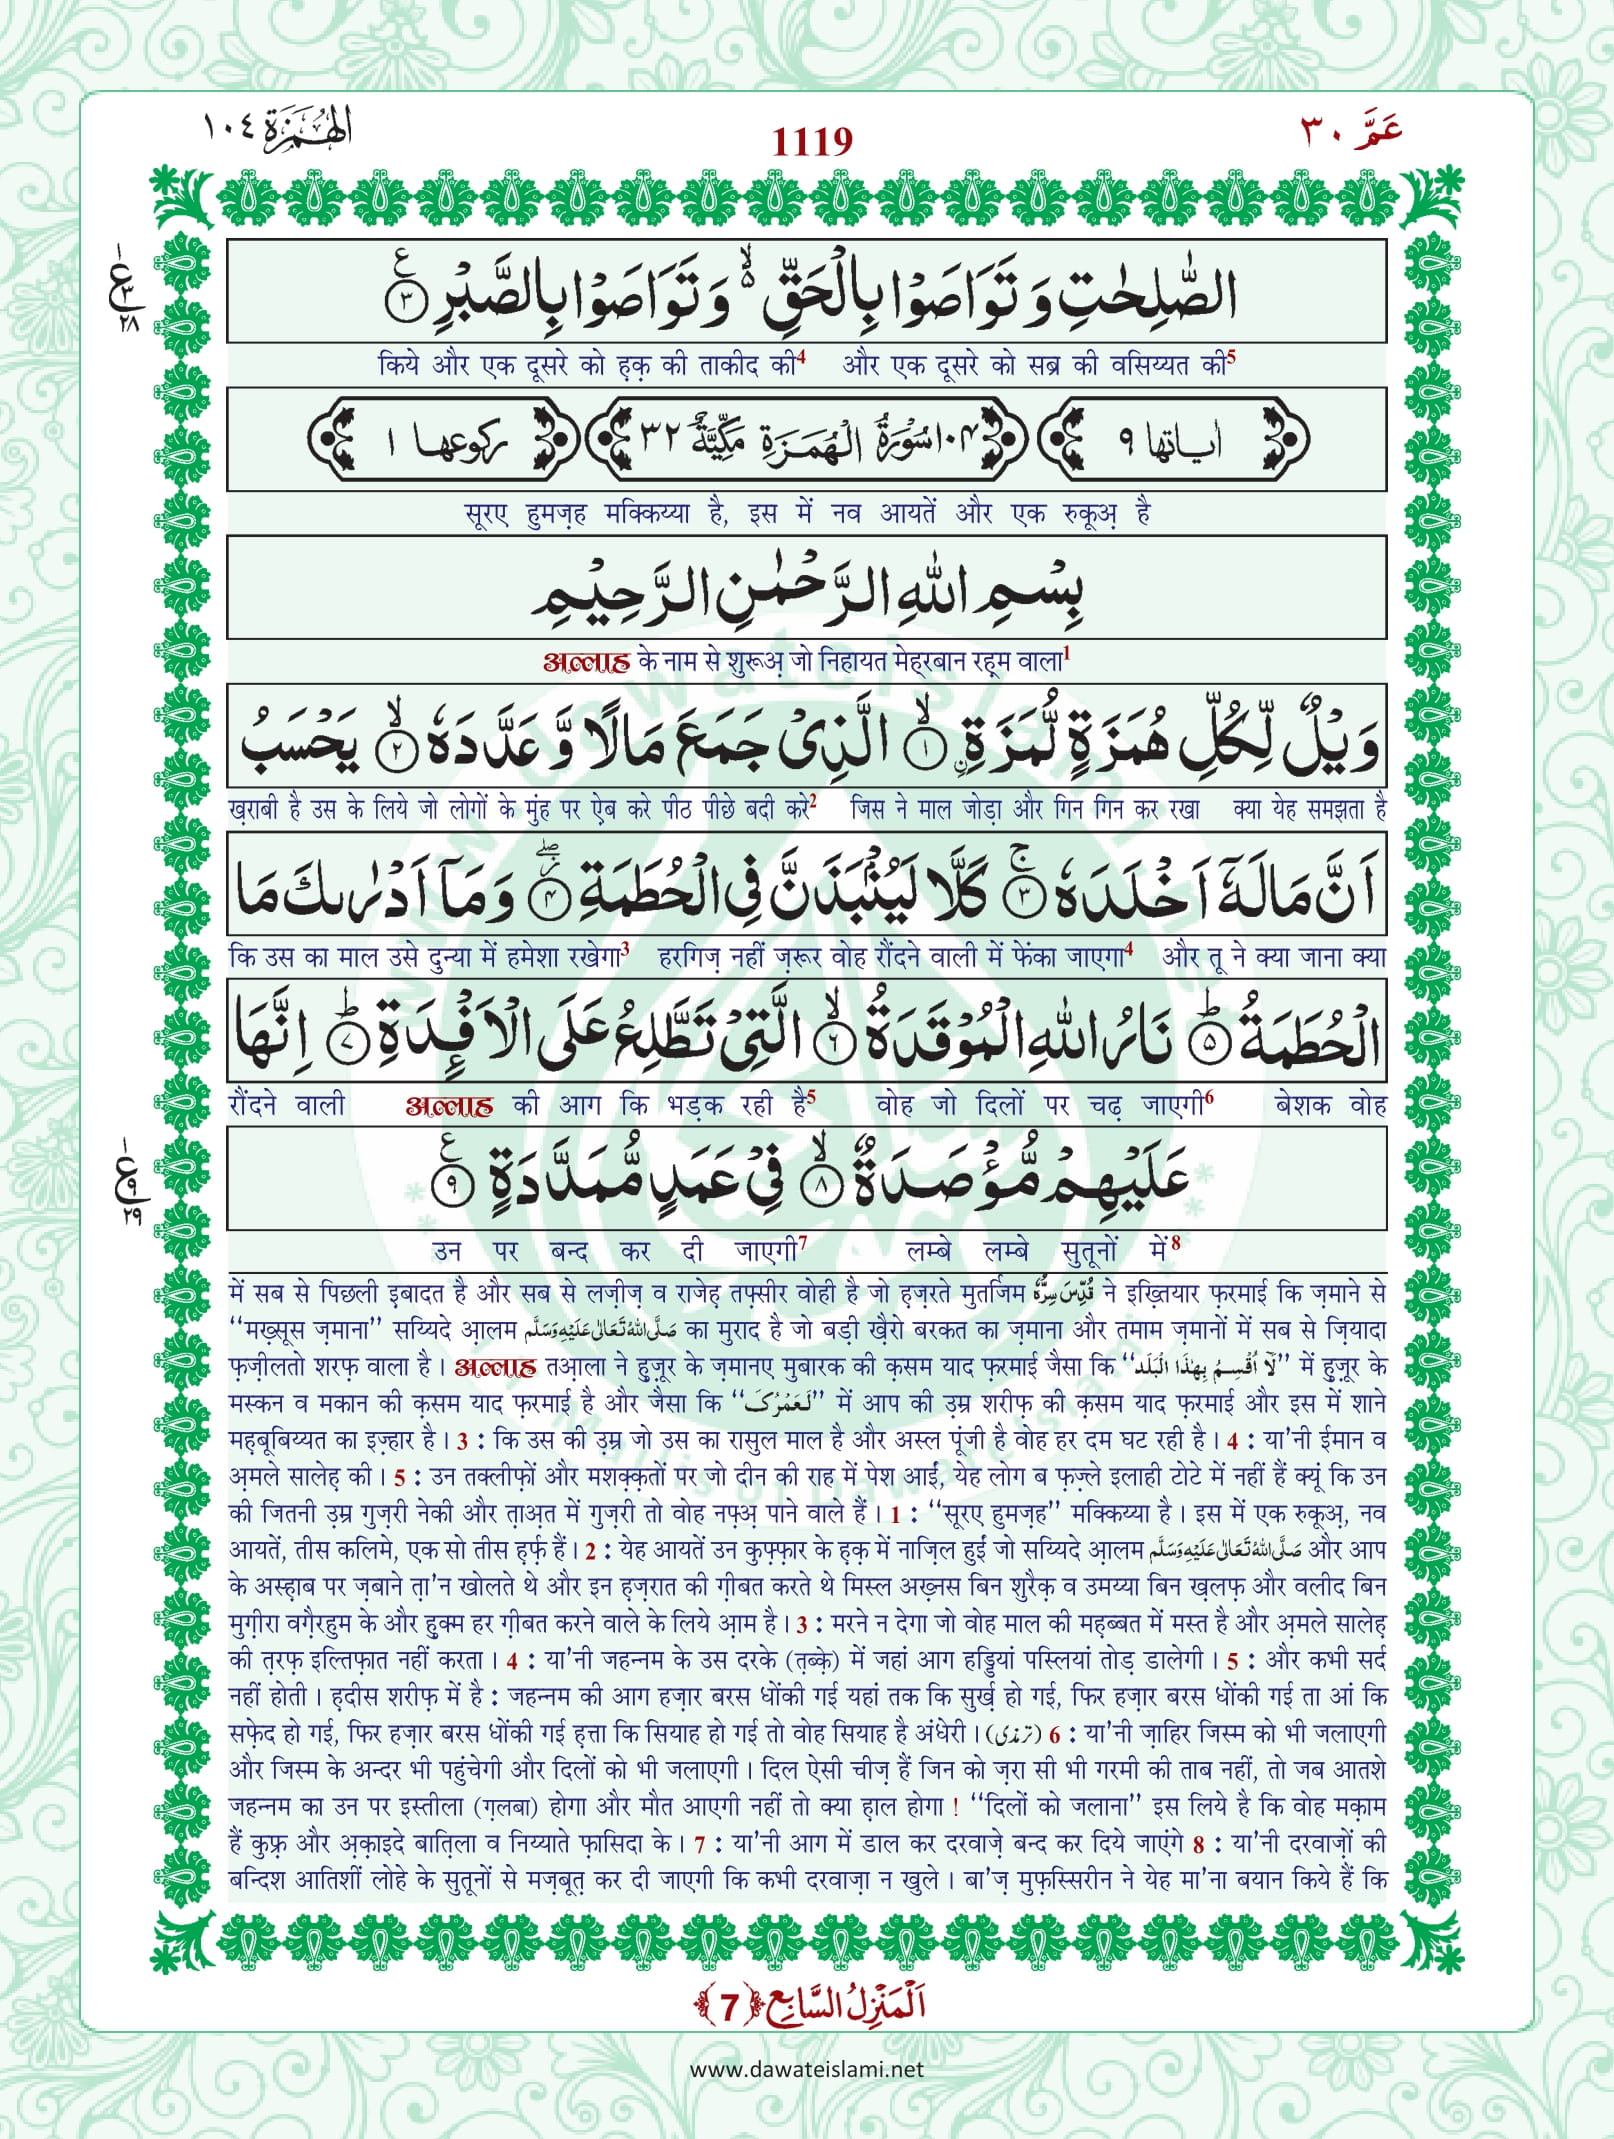 الهُمَزَة ١٠٤
1119
عَمَّ ٣٠
الصّٰلِحٰتِ وَ تَوَاصَوْا بِالْحَقِّ ۙ۬ وَ تَوَاصَوْا بِالصَّبْرِ۠ ﴿۳﴾
ع ٣ ٢٨
किये और एक दूसरे को ह़क़ की ताकीद की4 और एक दूसरे को सब्र की वसिय्यत की5
اٰیاتها ٩ ١٠٤ سُوْرَةُ الْهُمَزَةِ مَكِّيَّةٌ ٣٢ ركوعها ١
सूरए हुमज़ह मक्किय्या है, इस में नव आयतें और एक रुकूअ़ है
بِسْمِ اللّٰهِ الرَّحْمٰنِ الرَّحِیْمِ
अल्लाह के नाम से शुरूअ़ जो निहायत मेह्‌रबान रह़्‌म वाला1
وَیْلٌ لِّكُلِّ هُمَزَةٍ لُّمَزَةِ ﹰۙ ﴿۱﴾ الَّذِیْ جَمَعَ مَالًا وَّ عَدَّدَهٗ ۙ ﴿۲﴾ یَحْسَبُ
ख़राबी है उस के लिये जो लोगों के मुंह पर ऐब करे पीठ पीछे बदी करे2 जिस ने माल जोड़ा और गिन गिन कर रखा क्या येह समझता है
اَنَّ مَالَهٗۤ اَخْلَدَهٗ ۚ ﴿۳﴾ كَلَّا لَیُنْۢبَذَنَّ فِی الْحُطَمَةِ ٘ۖ ﴿۴﴾ وَ مَاۤ اَدْرٰىكَ مَا
कि उस का माल उसे दुन्या में हमेशा रखेगा3 हरगिज़ नहीं ज़रूर वोह रौंदने वाली में फेंका जाएगा4 और तू ने क्या जाना क्या
الْحُطَمَةُ ؕ ﴿۵﴾ نَارُ اللّٰهِ الْمُوْقَدَةُ ۙ ﴿۶﴾ الَّتِیْ تَطَّلِعُ عَلَى الْاَفْـٕدَةِ ؕ ﴿۷﴾ اِنَّهَا
रौंदने वाली अल्लाह की आग कि भड़क रही है5 वोह जो दिलों पर चढ़ जाएगी6 बेशक वोह
عَلَیْهِمْ مُّؤْصَدَةٌ ۙ ﴿۸﴾ فِیْ عَمَدٍ مُّمَدَّدَةٍ۠ ﴿۹﴾
ع ٩ ٢٩
उन पर बन्द कर दी जाएगी7 लम्बे लम्बे सुतूनों में8
में सब से पिछली इ़बादत है और सब से लज़ीज़ व राजेह़ तफ़्सीर वोही है जो ह़ज़रते मुतर्जिम قُدِّسَ سِرُّہٗ ने इख़्तियार फ़रमाई कि ज़माने से
“मख़्सूस ज़माना” सय्यिदे आ़लम صَلَّی اللّٰہُ تَعَالٰی عَلَیْہِ وَسَلَّم का मुराद है जो बड़ी ख़ैरो बरकत का ज़माना और तमाम ज़मानों में सब से ज़ियादा
फ़ज़ीलतो शरफ़ वाला है। अल्लाह तआ़ला ने हु़ज़ूर के ज़मानए मुबारक की क़सम याद फ़रमाई जैसा कि “لَاۤ اُقْسِمُ بِهٰذَا الْبَلَد” में हु़ज़ूर के
मस्कन व मकान की क़सम याद फ़रमाई है और जैसा कि “لَعَمْرُكَ” में आप की उ़म्र शरीफ़ की क़सम याद फ़रमाई और इस में शाने
मह़बूबिय्यत का इज़्हार है। 3 : कि उस की उ़म्र जो उस का रासुल माल है और अस्ल पूंजी है वोह हर दम घट रही है। 4 : या’नी ईमान व
अ़मले सालेह़ की। 5 : उन तक्लीफ़ों और मशक़्क़तों पर जो दीन की राह में पेश आईं, येह लोग ब फ़ज़्ले इलाही टोटे में नहीं हैं क्यूं कि उन
की जितनी उ़म्र गुज़री नेकी और त़ाअ़त में गुज़री तो वोह नफ़्अ़ पाने वाले हैं। 1 : “सूरए हुमज़ह” मक्किय्या है। इस में एक रुकूअ़, नव
आयतें, तीस कलिमे, एक सो तीस ह़र्फ़ हैं। 2 : येह आयतें उन कुफ़्फ़ार के ह़क़ में नाज़िल हुईं जो सय्यिदे आ़लम صَلَّی اللّٰہُ تَعَالٰی عَلَیْہِ وَسَلَّم और आप
के अस्ह़ाब पर ज़बाने त़ा’न खोलते थे और इन ह़ज़रात की ग़ीबत करते थे मिस्ल अख़्नस बिन शुरैक़ व उमय्या बिन ख़लफ़ और वलीद बिन
मुग़ीरा वग़ैरहुम के और हु़क्म हर ग़ीबत करने वाले के लिये आ़म है। 3 : मरने न देगा जो वोह माल की महब्बत में मस्त है और अ़मले सालेह़
की त़रफ़ इल्तिफ़ात नहीं करता। 4 : या’नी जहन्नम के उस दरके (त़ब्के़) में जहां आग हड्डियां पस्लियां तोड़ डालेगी। 5 : और कभी सर्द
नहीं होती। ह़दीस शरीफ़ में है : जहन्नम की आग हज़ार बरस धोंकी गई यहां तक कि सुर्ख़ हो गई, फिर हज़ार बरस धोंकी गई ता आं कि
सफे़द हो गई, फिर हज़ार बरस धोंकी गई ह़त्ता कि सियाह हो गई तो वोह सियाह है अंधेरी। (ترمذی) 6 : या’नी ज़ाहिर जिस्म को भी जलाएगी
और जिस्म के अन्दर भी पहुंचेगी और दिलों को भी जलाएगी। दिल ऐसी चीज़ हैं जिन को ज़रा सी भी गरमी की ताब नहीं, तो जब आतशे
जहन्नम का उन पर इस्तीला (ग़लबा) होगा और मौत आएगी नहीं तो क्या ह़ाल होगा ! “दिलों को जलाना” इस लिये है कि वोह मक़ाम
हैं कुफ़्र और अ़क़ाइदे बात़िला व निय्याते फ़ासिदा के। 7 : या’नी आग में डाल कर दरवाज़े बन्द कर दिये जाएंगे 8 : या’नी दरवाज़ों की
बन्दिश आतिशीं लोहे के सुतूनों से मज़बूत़ कर दी जाएगी कि कभी दरवाज़ा न खुले। बा’ज़ मुफ़स्सिरीन ने येह मा’ना बयान किये हैं कि
اَلْمَنْزِلُ السَّابِع ﴿7﴾
www.dawateislami.net